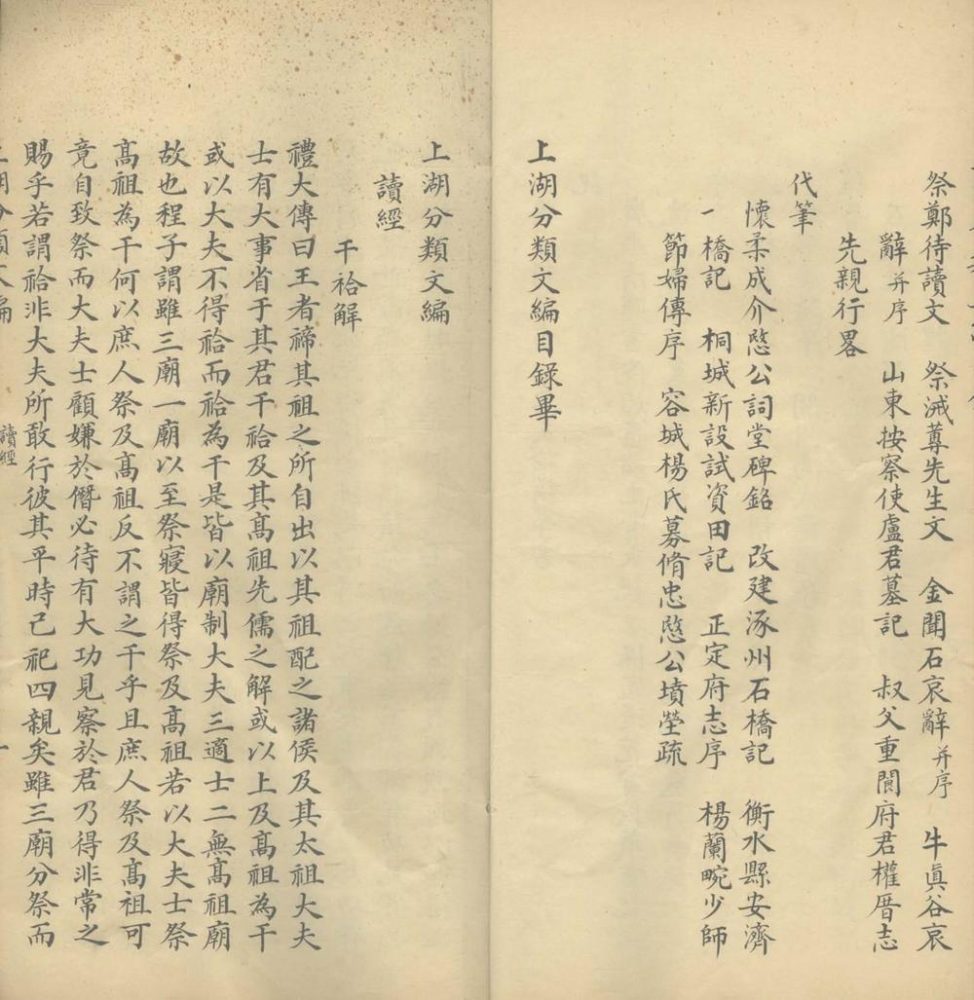 祭鄭待讀文　祭淢蓴先生文　金聞石哀辭并序　牛眞谷哀
辭并序　山東按察使盧君墓記　叔父重閬府君權厝志
先親行畧
代筆
懷柔成介愍公祠堂碑銘　改建涿州石橋記　衡水縣安濟
橋記　桐城新設試資田記　正定府志序　楊蘭畹少師
節婦傳序　容城楊氏募脩忠愍公墳塋疏
上湖分類文編目錄畢
上湖分類文編
讀經
干祫解
禮大傳曰王者禘其祖之所自出以其祖配之諸侯及其太祖大夫
士有大事省于其君干祫及其髙祖先儒之解或以上及髙祖為干
或以大夫不得祫而祫為干是皆以廟制大夫三適士二無髙祖廟
故也程子謂雖三廟一廟以至祭寢皆得祭及髙祖若以大夫士祭
髙祖為干何以庶人祭及髙祖反不謂之干乎且庶人祭及髙祖可
竟自致祭而大夫士顧嫌於僭必待有大功見察於君乃得非常之
賜乎若謂祫非大夫所敢行彼其平時已祀四親矣雖三廟分祭而
讀經